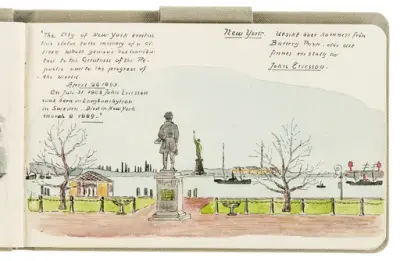 "The City of New York erects
this statue to the memory of a ci-
tizen whose genius has contribu-
ted to the Greatness of the Re-
public and to the progress of
the world.
April 26 1893.
On July 31 1803 John Ericsson
was born in Langbanshyttan
in Sweden. Died in New York
march 8 1889."
New York.
Utsikt över hamnen från
Battery Park. ute vid
John Ericsson.